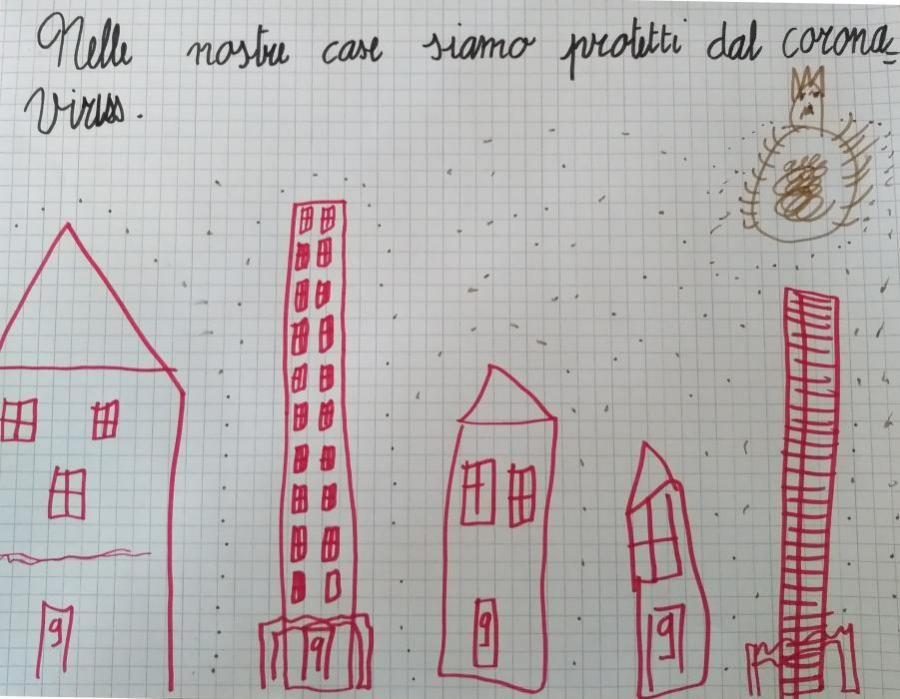 Nelle nostre case siamo protetti dal corona=
virus.
9
9
9
9